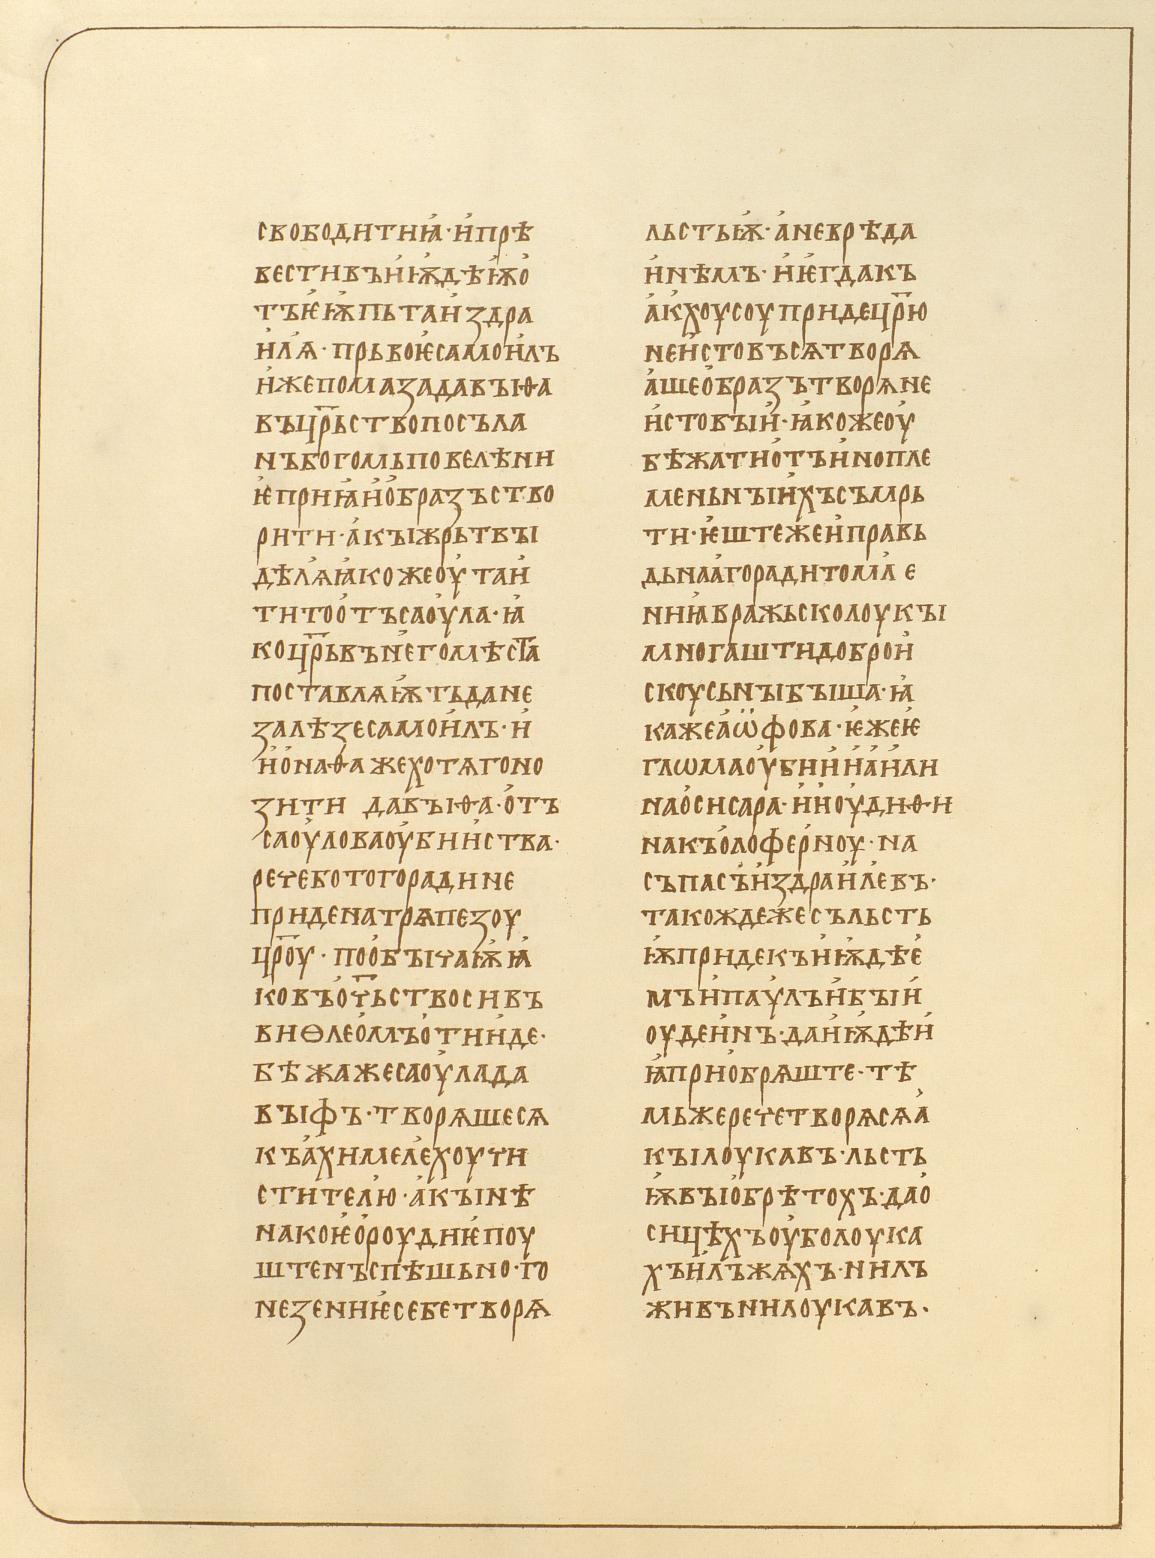 свободити ꙗ҆· и҆ прѣ
вести въ и҆ѭ҆дѣѭ҆ о҆
тъ ѥ҆ѭ҆пьта и҆здра
и҆лꙙ· прьвоѥ самои҆лъ
и҆же помаза давъіѳа
въ цр҃ьство посъла
нъ богомь повелѣни
ѥ прииѧ и҆ о҆бразъ ство
рити· а҆кы жрьтвы
дѣлꙗ ꙗкоже оу҆таи҆
ти то о҆тъ саоу҆ла· ꙗ҆
ко цр҃ь въ н҆его мѣста
поставлꙗѭ҆тъ да не
залѣзе самои҆лъ· и҆
и҆о҆наѳа же хотꙙ гоно
зити давъіѳа· о҆тъ
саоу҆лова оу҆бии҆ства·
рече бо того ради не
приде на трꙙпезоу
цр҃оу· по о҆бычаѭ҆ ꙗ҆
ко въ о҆ч҃ьство си въ
виѳлео҆мъ о҆тии҆де·
бѣжа же саоу҆ла да
въіфъ· творꙙше сꙙ
къ а҆химеле҆хоу чи
стителю· а҆кы нѣ
на коѥ҆ о҆роудиѥ поу
штенъ спѣшьно· го
незениѥ себе творꙙ
льстьѭ҆· а҆ не врѣда
и҆нѣмъ· и҆ ѥ҆гда къ
а҆кхоусоу приде цр҃ю
неи҆стовъ сꙙ творꙙ
а҆ще о҆бразъ творꙙ не
и҆стовыи҆· ꙗкоже оу҆
бѣжати о҆тъ и҆нопле
меньныи҆хъ съмрь
ти· ѥ҆ште же и҆ правь
дьнаа҆го ради томле
ниꙗ вражьско лоукы
многашти доброи҆
скоусьны быша· ꙗ҆
каже а҆ѡфова· ѥ҆же ѥ҆
глѡма оу҆бии҆ и҆ а҆и҆ли
на о҆ сисара· и҆ и҆оудиѳи
на къ о҆лоферноу· на
съпасъ и҆здраи҆левъ·
такожде же съ льсть
ѭ҆ приде къ и҆ѭ҆дѣе҆
мъ и҆ паулъ и҆ бы и҆
оудеи҆нъ· да и҆ѭ҆дѣи҆
ꙗ҆ прио҆брꙙште· тѣ
мьже рече творꙙ сꙙ а҆
кы лоукавъ· льсть
ѭ҆ вы о҆брѣтохъ· да о҆
сицѣхъ оу҆бо лоука
хъ и҆ лъжꙙхъ· ни лъ
живъ ни лоукавъ·